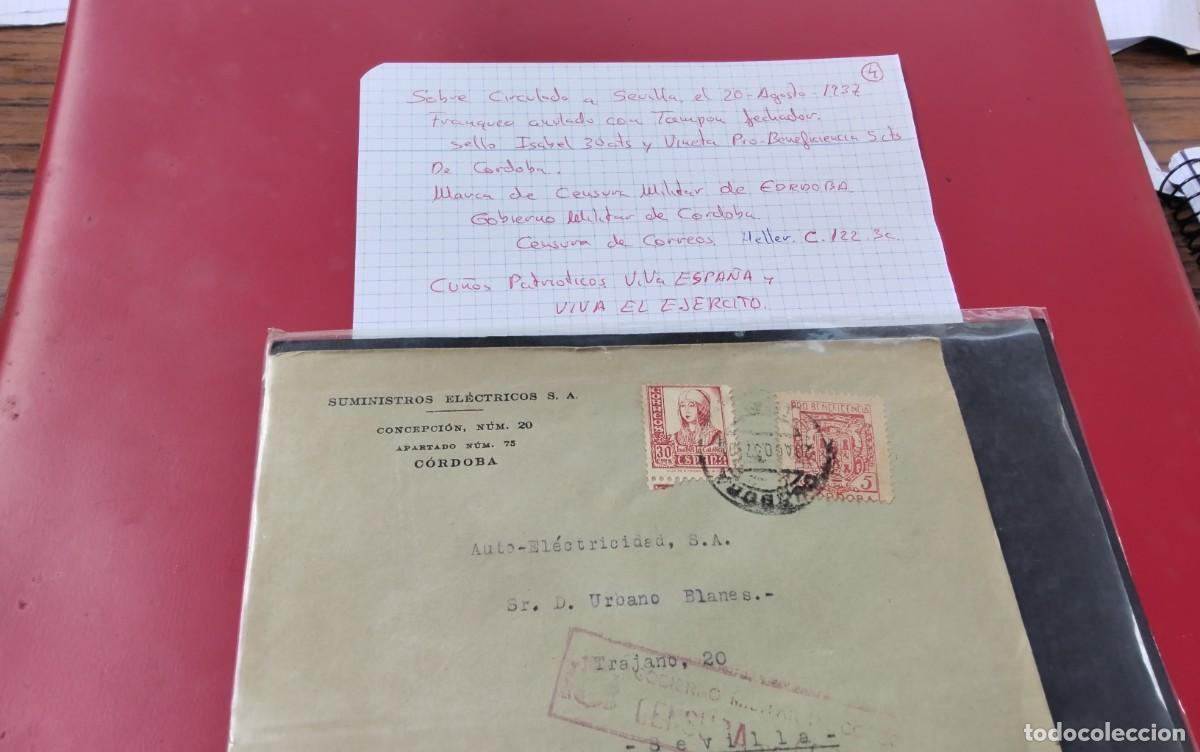 4
Sobre Circulado a Sevilla, el 20-Agosto-1937
Franqueo anulado con Tampon fechador.
sello Isabel 30cts y Viñeta Pro-Beneficiencia 5cts
De Cordoba.
Marca de Censura Militar de CORDOBA
Gobierno Militar de Cordoba
Censura de Correos, Heller. C.122.3c.
Cuños Patrioticos ViVa ESPAÑA y
VIVA EL EJERCITO.
SUMINISTROS ELÉCTRICOS S. A.
CONCEPCIÓN, NÚM. 20
APARTADO NÚM. 75
CÓRDOBA
CORREOS
30
CTS
Isabel la Católica
ESPAÑA
PRO BENEFICENCIA
5
CORDOBA
AGO.37
Auto-Eléctricidad, S.A.
Sr. D. Urbano Blanes.-
Trajano, 20
GOBIERNO MILITAR
CENSURA
-Sevilla,-
todocoleccion